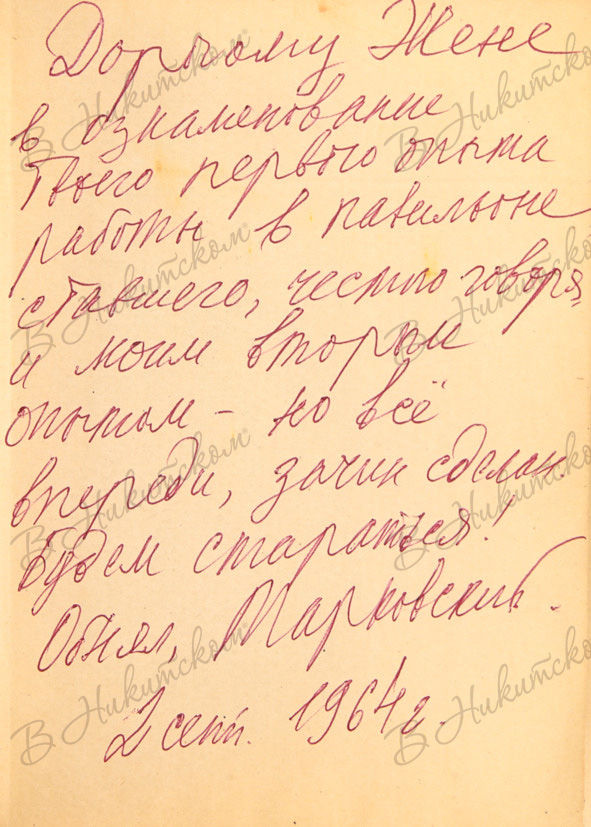 Дорогому Жене
в ознаменование
твоего первого опыта
работы в павильоне
ставшего, честно говоря,
и моим вторым
опытом – но всё
впереди, зачин сделан.
Будем стараться!
Обнял, Марковский.
2 сент. 1964 г.
В Никитском
В Никитском
В Никитском
В Никитском
В Никитском
В Никитском
В Никитском
В Никитском